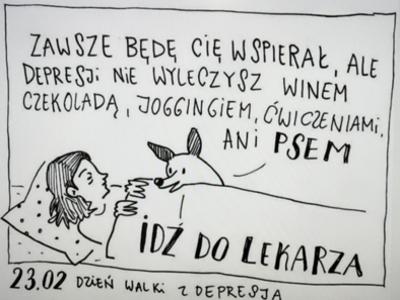 ZAWSZE BĘDĘ CIĘ WSPIERAŁ, ALE
DEPRESJI NIE WYLECZYSZ WINEM
CZEKOLADĄ, JOGGINGIEM, ĆWICZENIAMI,
ANI PSEM
IDŹ DO LEKARZA
23.02 DZIEŃ WALKI Z DEPRESJĄ